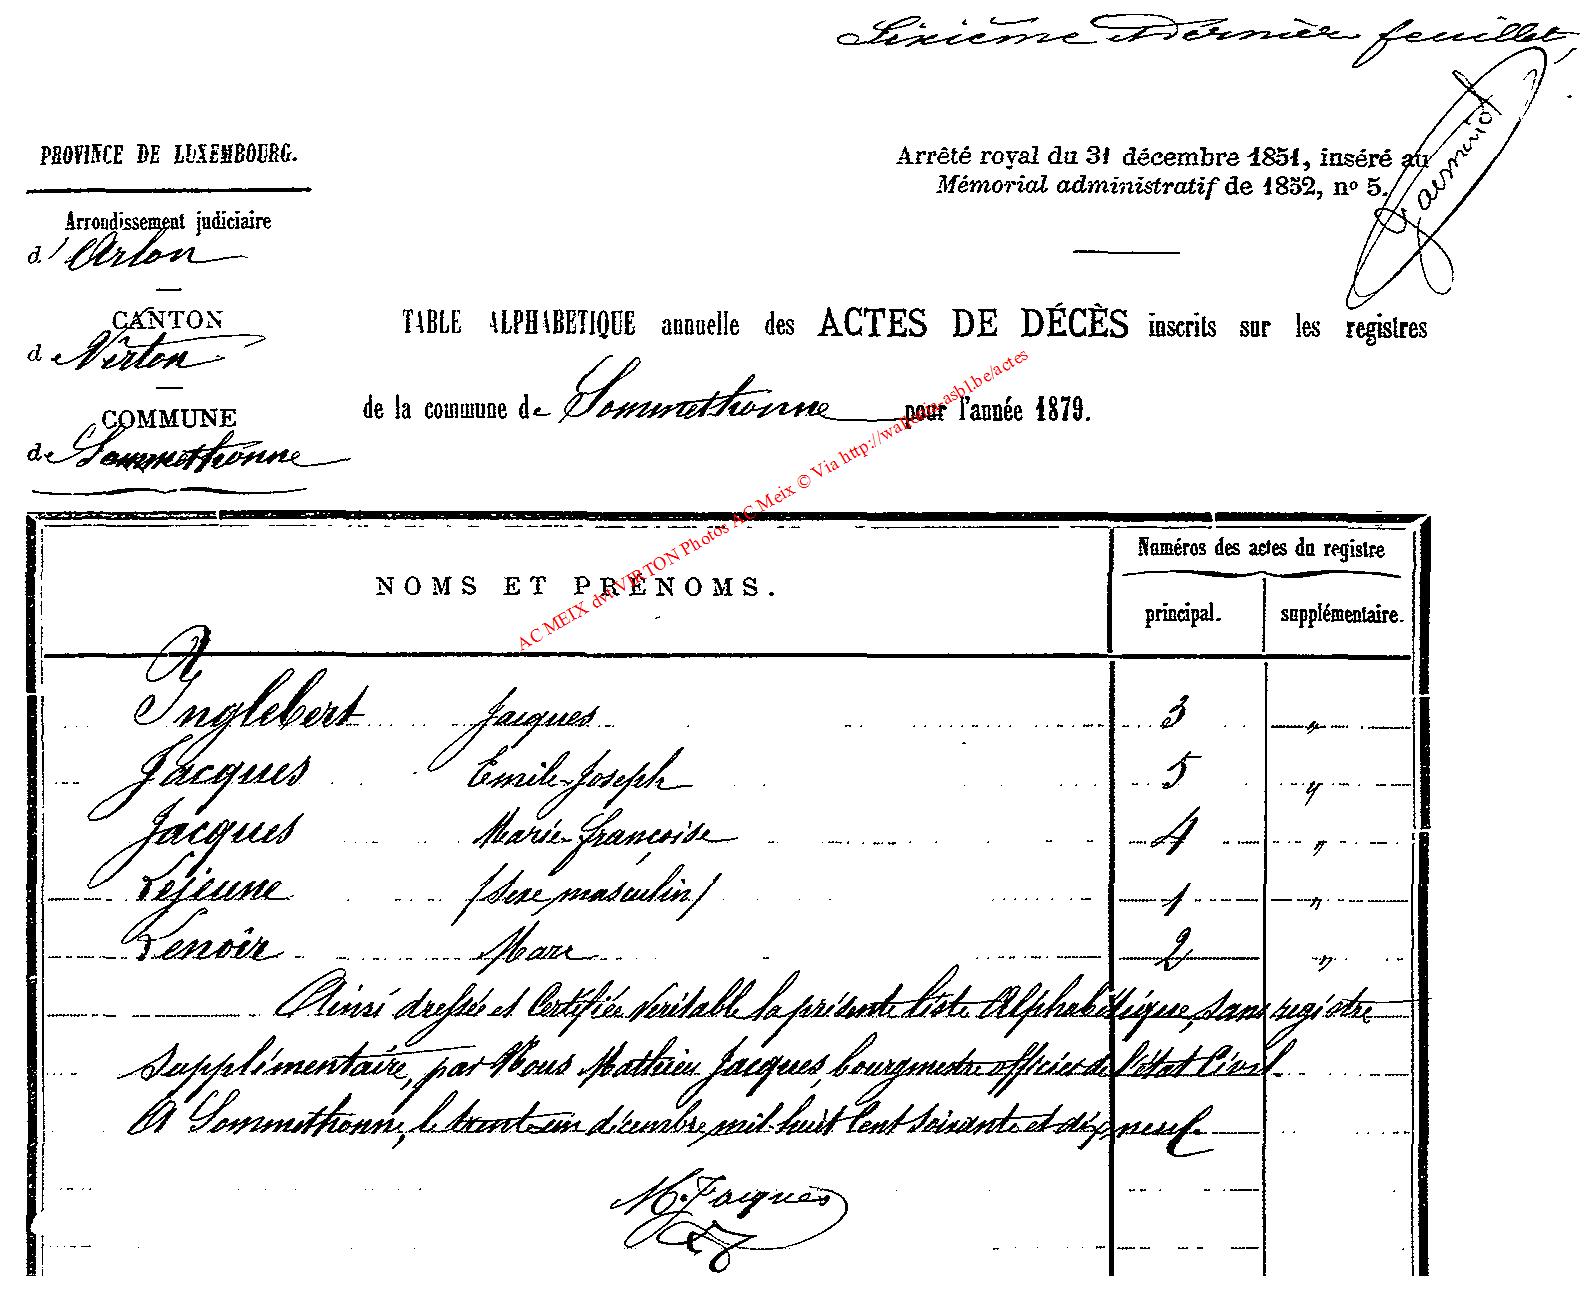 Sixième et Dernier feuillet,
PROVINCE DE LUXEMBOURG.
Arrêté royal du 31 décembre 1851, inséré au
Mémorial administratif de 1852, nº 5.
Arrondissement judiciaire
d'Arlon
CANTON
de Virton
COMMUNE
de Sommethonne
TABLE ALPHABETIQUE annuelle des ACTES DE DÉCÈS inscrits sur les registres
de la commune de Sommethonne pour l'année 1879.
AC MEIX dvt VIRTON Photos AC Meix © Via http://wallonia-asbl.be/actes
NOMS ET PRÉNOMS.
Numéros des actes du registre
principal. supplémentaire.
Inglebert Jacques 3 "
Jacques Emile-Joseph 5 "
Jacques Marie-françoise 4 "
Lejeune (Sexe masculin) 1 "
Lenoir Marc 2 "
Ainsi dressée et Certifiée Véritable la présente liste Alphabétique, sans registre
supplémentaire, par Nous Mathieu Jacques, bourgmestre officier de l'état Civil
A Sommethonne, le trente-un décembre, mil-huit Cent Soixante et dix neuf.
M. Jacques